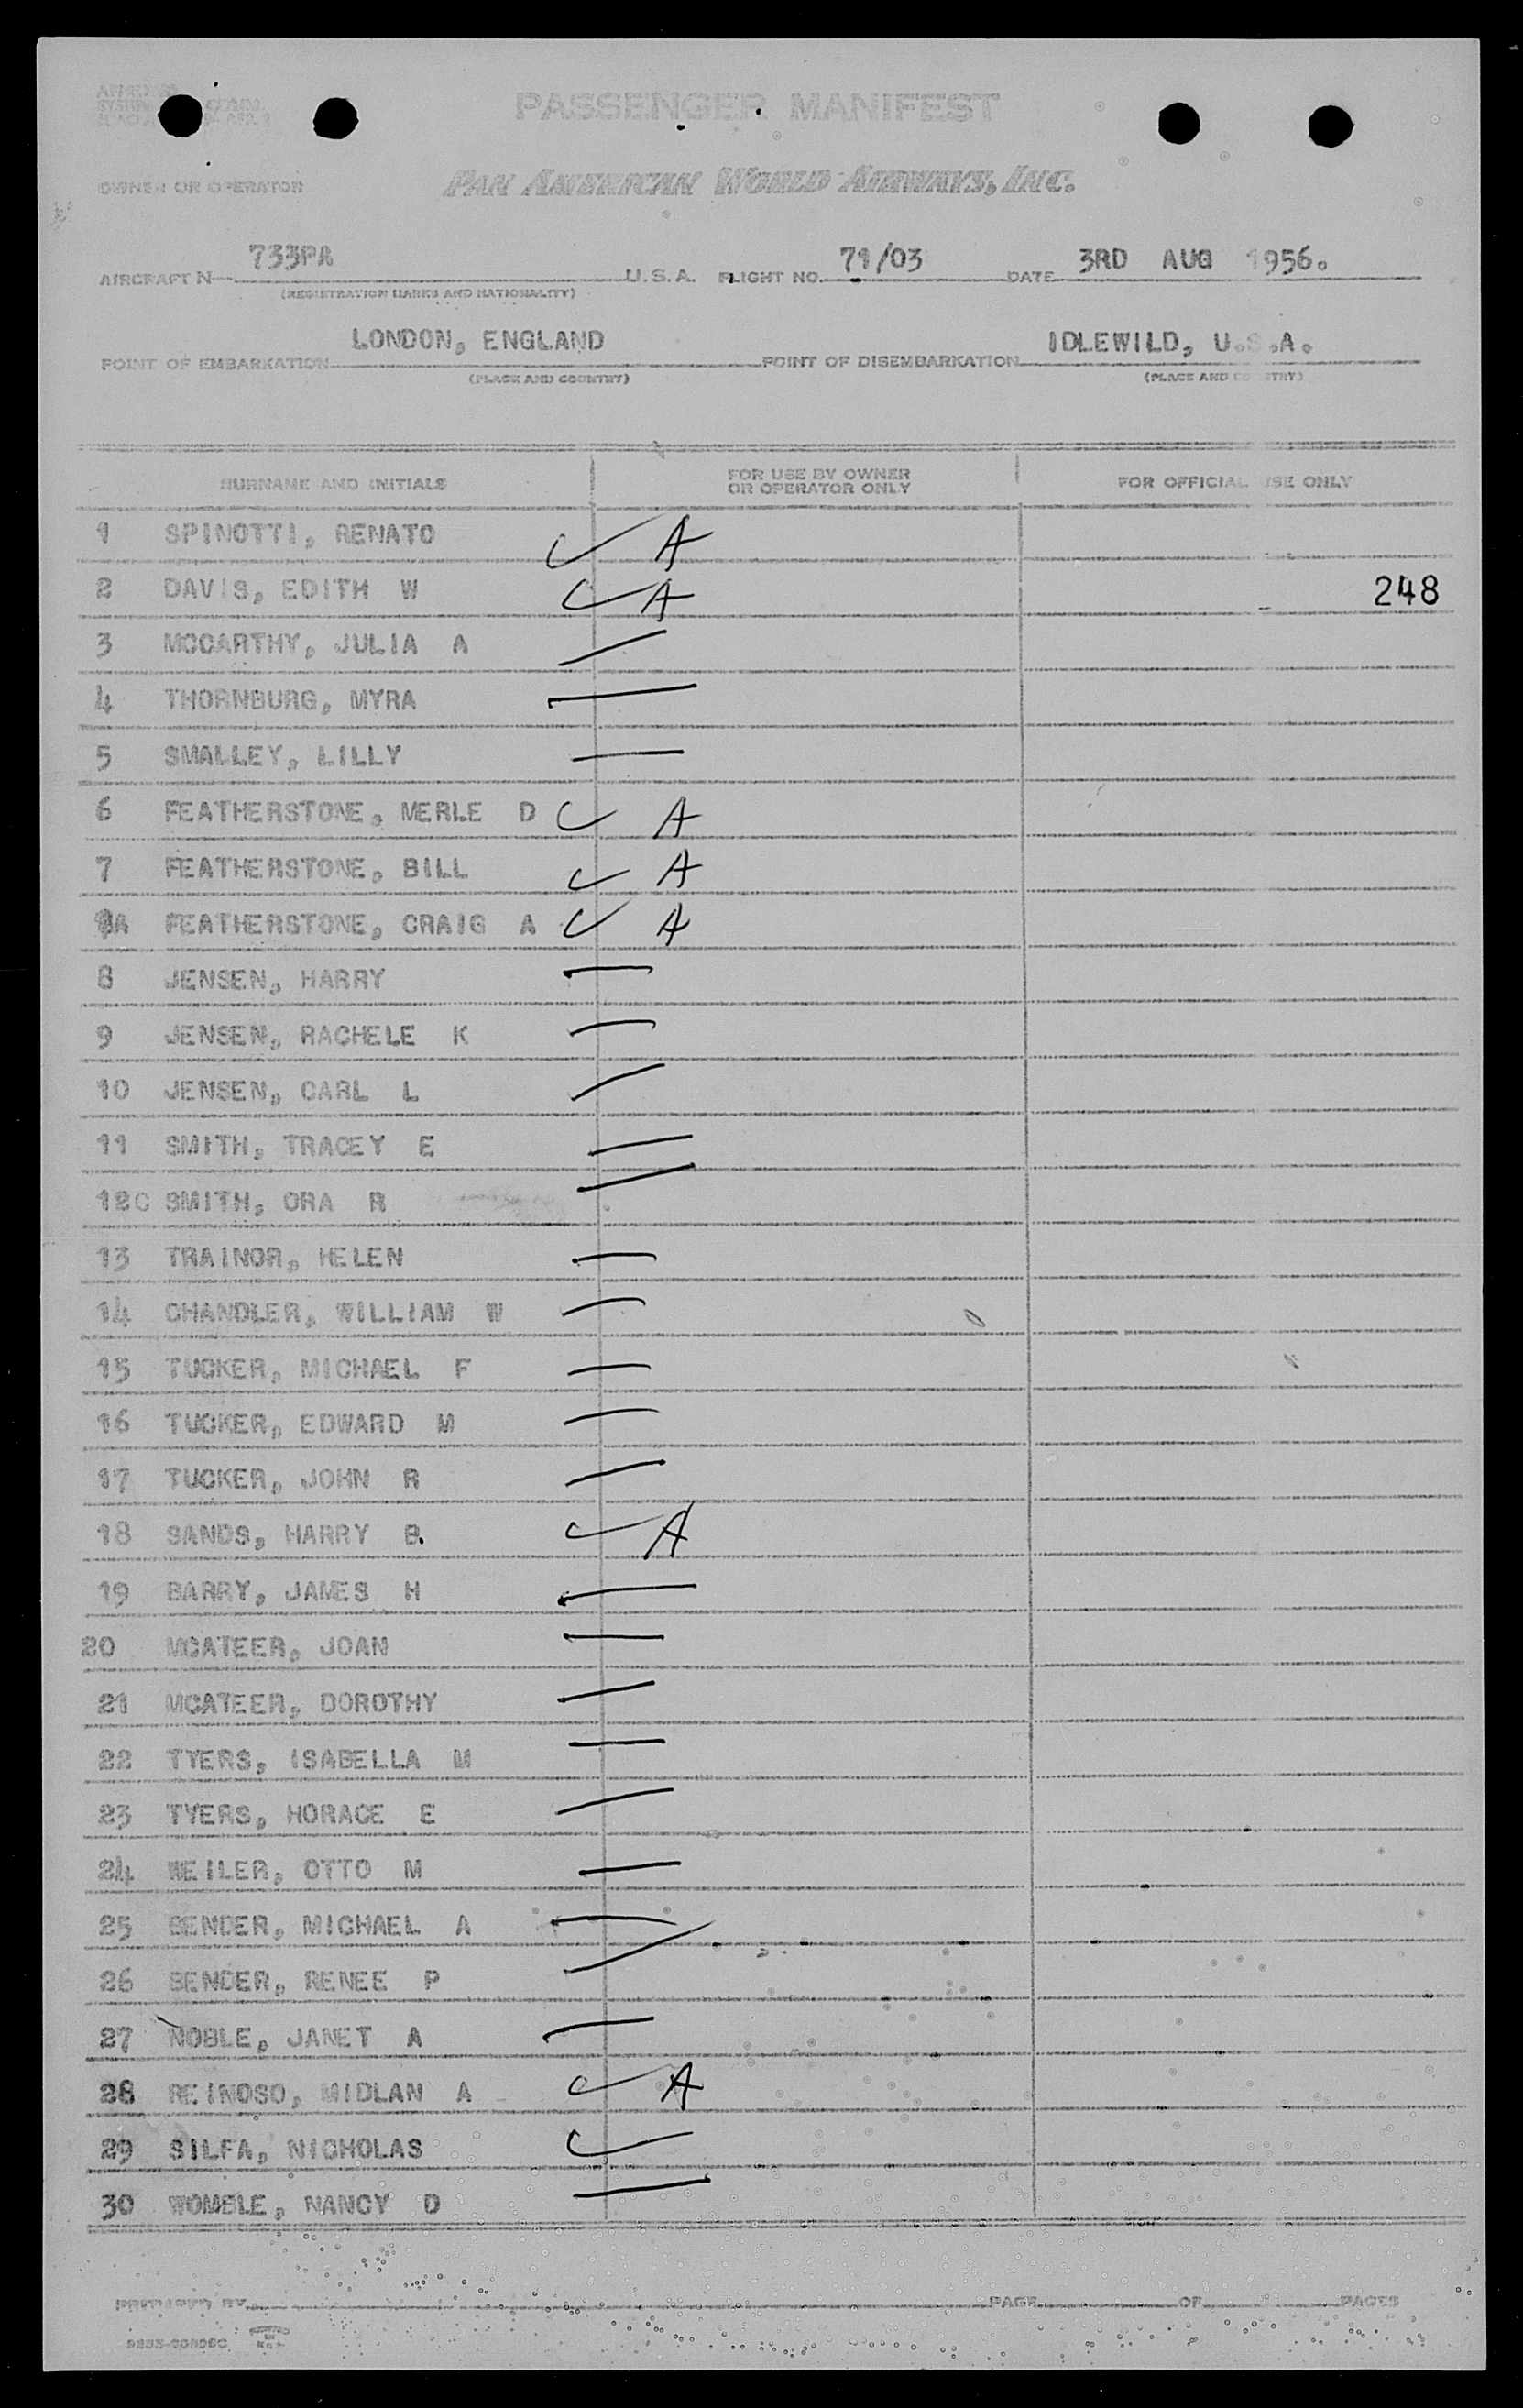 PASSENGER MANIFEST
OWNER OR OPERATOR PAN AMERICAN WORLD AIRWAYS, INC.
AIRCRAFT N 733PA U.S.A. FLIGHT NO. 71/03 DATE 3RD AUG 1956.
(REGISTRATION MARKS AND NATIONALITY)
POINT OF EMBARKATION LONDON, ENGLAND POINT OF DISEMBARKATION IDLEWILD, U.S.A.
(PLACE AND COUNTRY) (PLACE AND COUNTRY)
SURNAME AND INITIALS FOR USE BY OWNER OR OPERATOR ONLY FOR OFFICIAL USE ONLY
1 SPINOTTI, RENATO A
2 DAVIS, EDITH W A 248
3 MCCARTHY, JULIA A
4 THORNBURG, MYRA
5 SMALLEY, LILLY
6 FEATHERSTONE, MERLE D A
7 FEATHERSTONE, BILL A
FEATHERSTONE, CRAIG A A
8 JENSEN, HARRY
9 JENSEN, RACHELE K
10 JENSEN, CARL L
11 SMITH, TRACEY E
12C SMITH, ORA R
13 TRAINOR, HELEN
14 CHANDLER, WILLIAM W
15 TUCKER, MICHAEL F
16 TUCKER, EDWARD M
17 TUCKER, JOHN R
18 SANDS, HARRY B. A
19 BARRY, JAMES H
20 MCATEER, JOAN
21 MCATEER, DOROTHY
22 TYERS, ISABELLA M
23 TYERS, HORACE E
24 WEILER, OTTO M
25 BENDER, MICHAEL A
26 BENDER, RENEE P
27 NOBLE, JANET A
28 REINOSO, MIDLAN A A
29 SILFA, NICHOLAS
30 WOMBLE, NANCY D
PREPARED BY PAGE OF PAGES